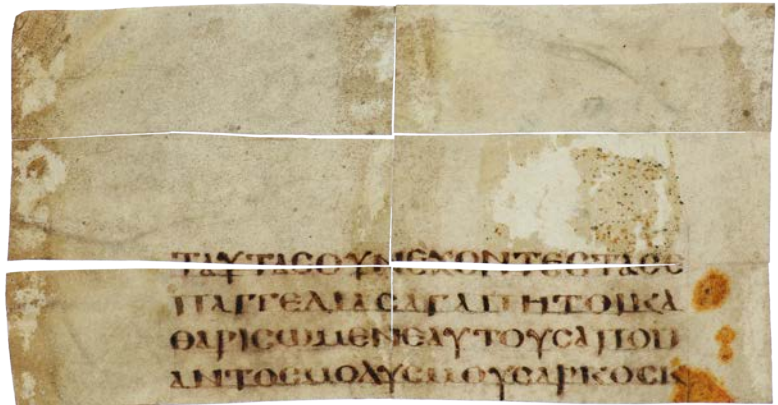 ΤΑΥΤΑϹΟΥΝΕΧΟΝΤΕϹΤΑϹΕ
ΠΑΓΓΕΛΙΑϹΑΓΑΠΗΤΟΙΚΑ
ΘΑΡΙϹΩΜΕΝΕΑΥΤΟΥϹΑΠΟΠ
ΑΝΤΟϹΜΟΛΥϹΜΟΥϹΑΡΚΟϹΚ